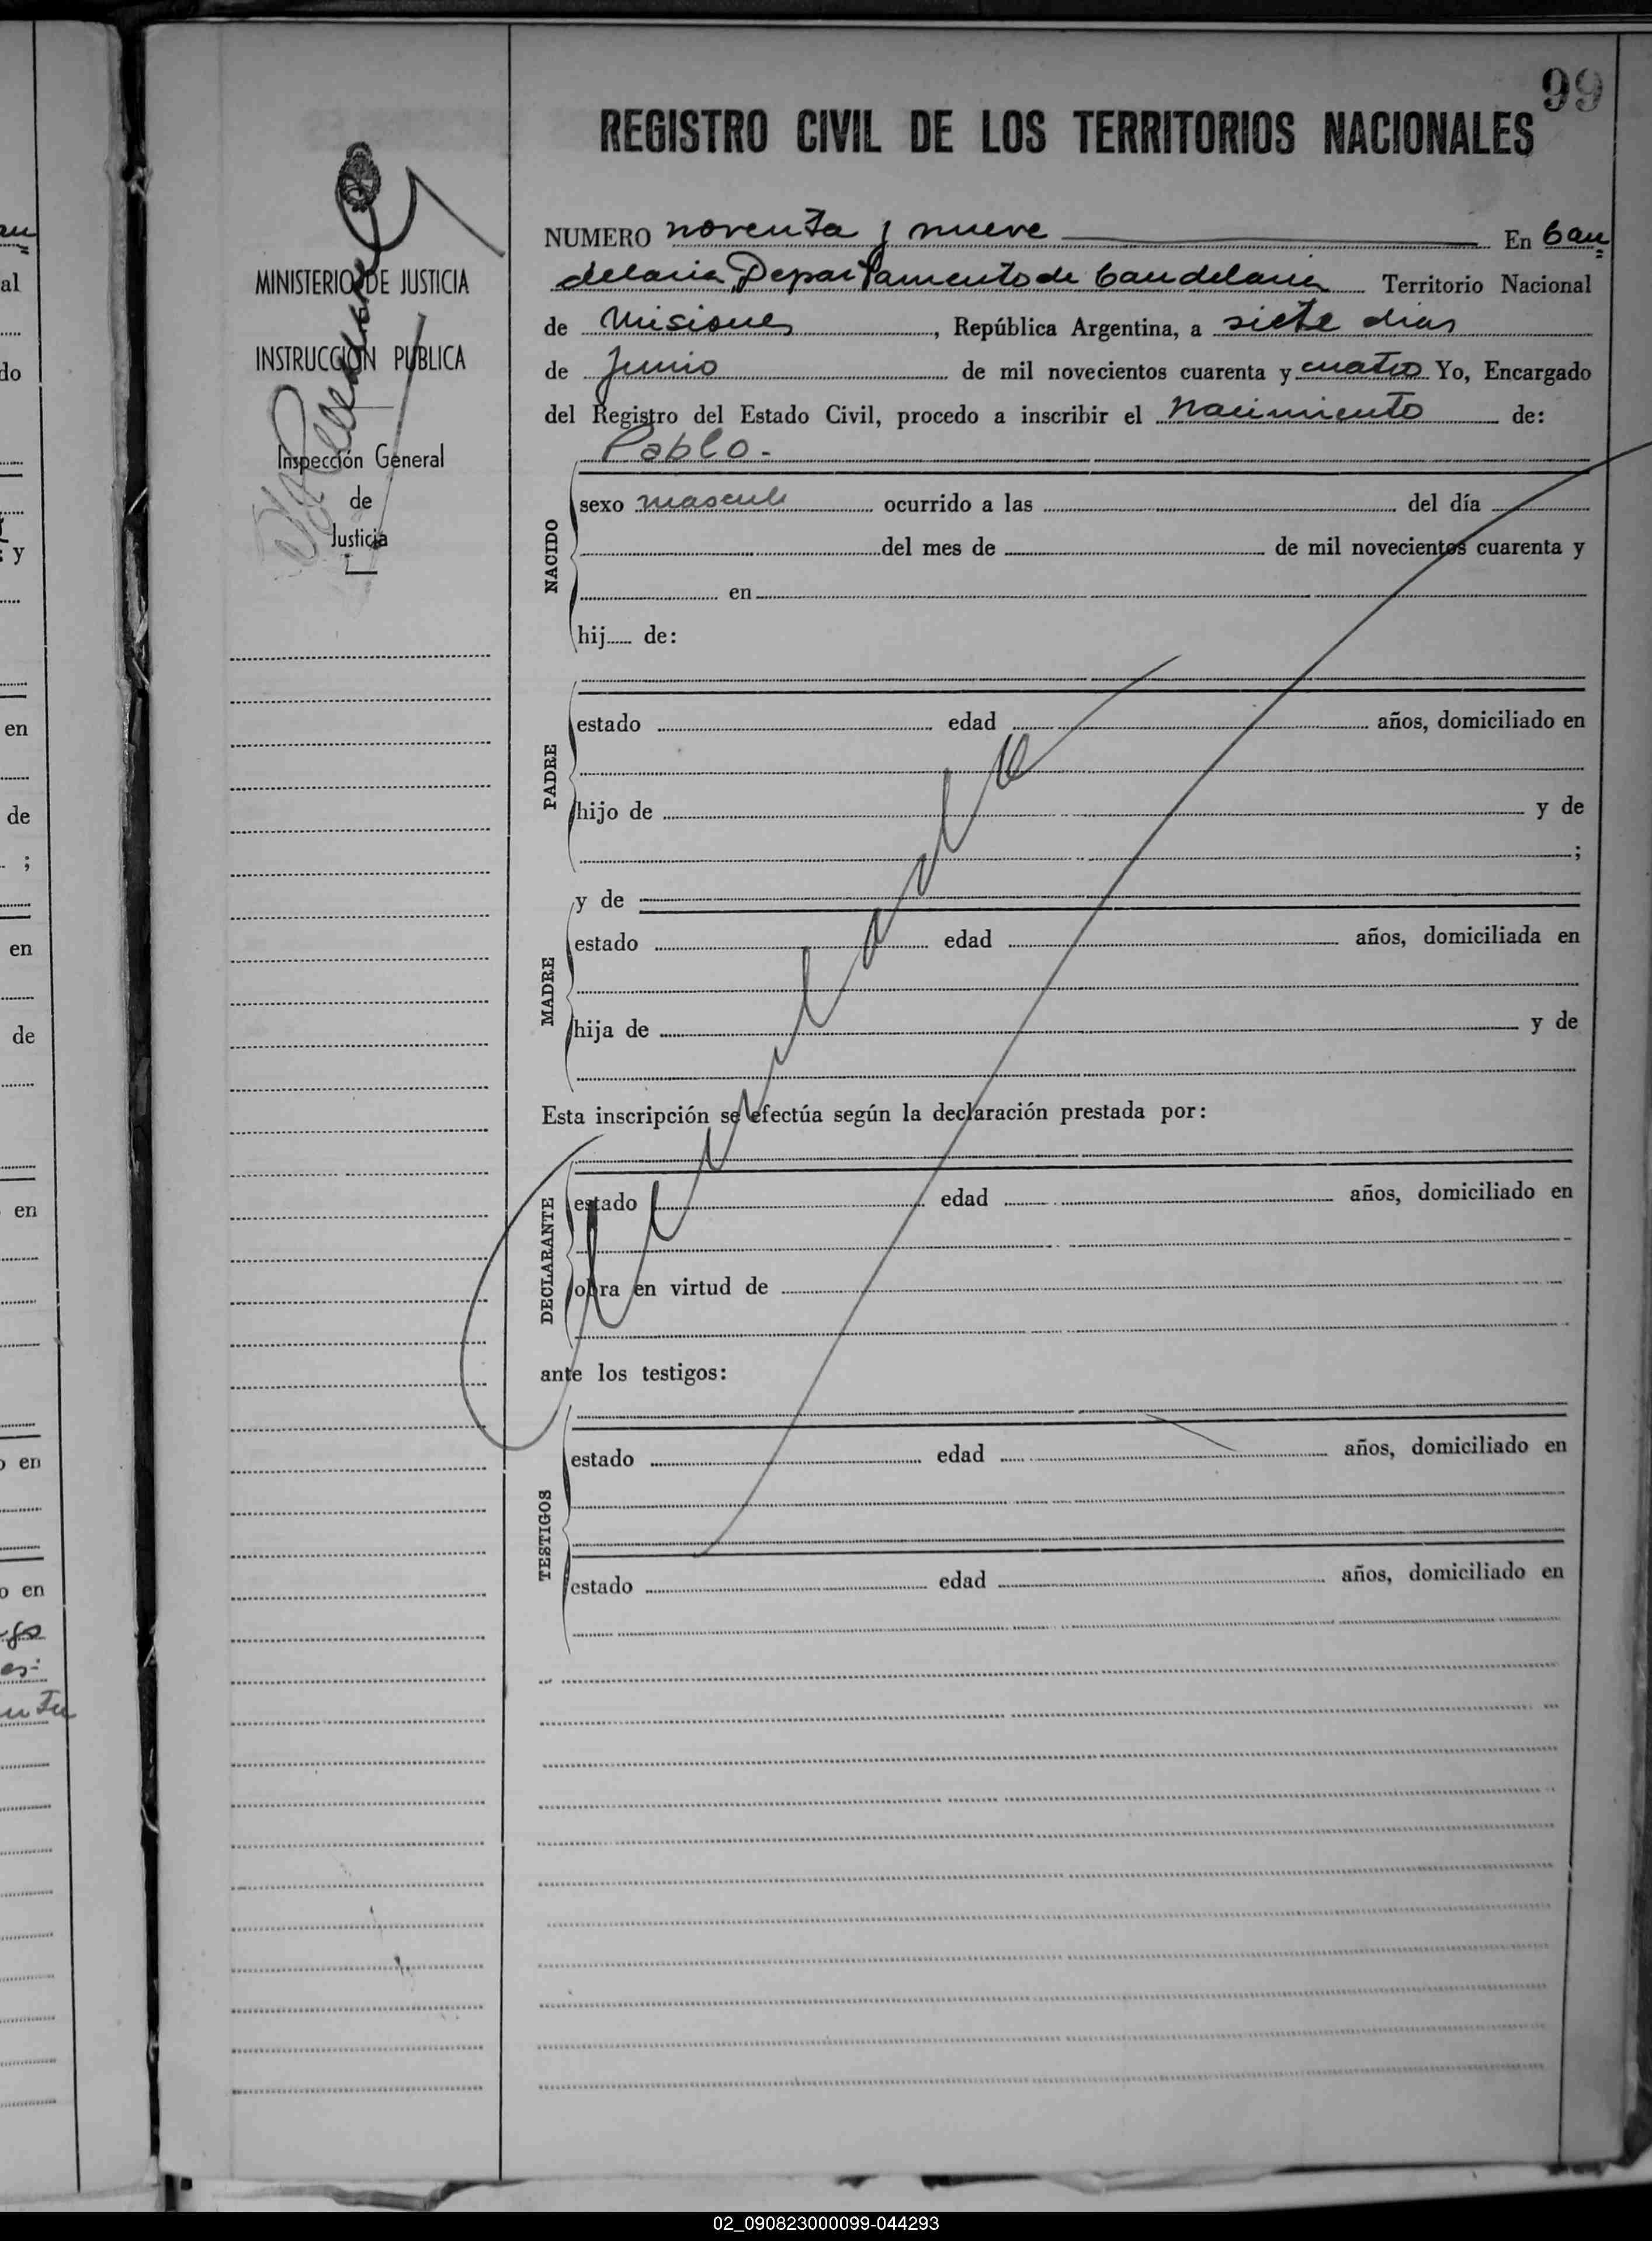 99
REGISTRO CIVIL DE LOS TERRITORIOS NACIONALES
MINISTERIO DE JUSTICIA
INSTRUCCIÓN PUBLICA
Inspección General
de
Justicia
NUMERO noventa y nueve En Can
delaria, Departamento de Candelaria Territorio Nacional
de Misiones, República Argentina, a siete dias
de Junio de mil novecientos cuarenta y cuatro Yo, Encargado
del Registro del Estado Civil, procedo a inscribir el Nacimiento de:
Pablo.-
NACIDO
sexo mascul ocurrido a las del día
del mes de de mil novecientos cuarenta y
en
hij de:
PADRE
estado edad años, domiciliado en
hijo de y de
;
MADRE
y de
estado edad años, domiciliada en
hija de y de
Esta inscripción se efectúa según la declaración prestada por:
DECLARANTE
estado edad años, domiciliado en
obra en virtud de
ante los testigos:
TESTIGOS
estado edad años, domiciliado en
estado edad años, domiciliado en
al
do
y
en
de
;
en
de
en
en
en
02_090823000099-044293